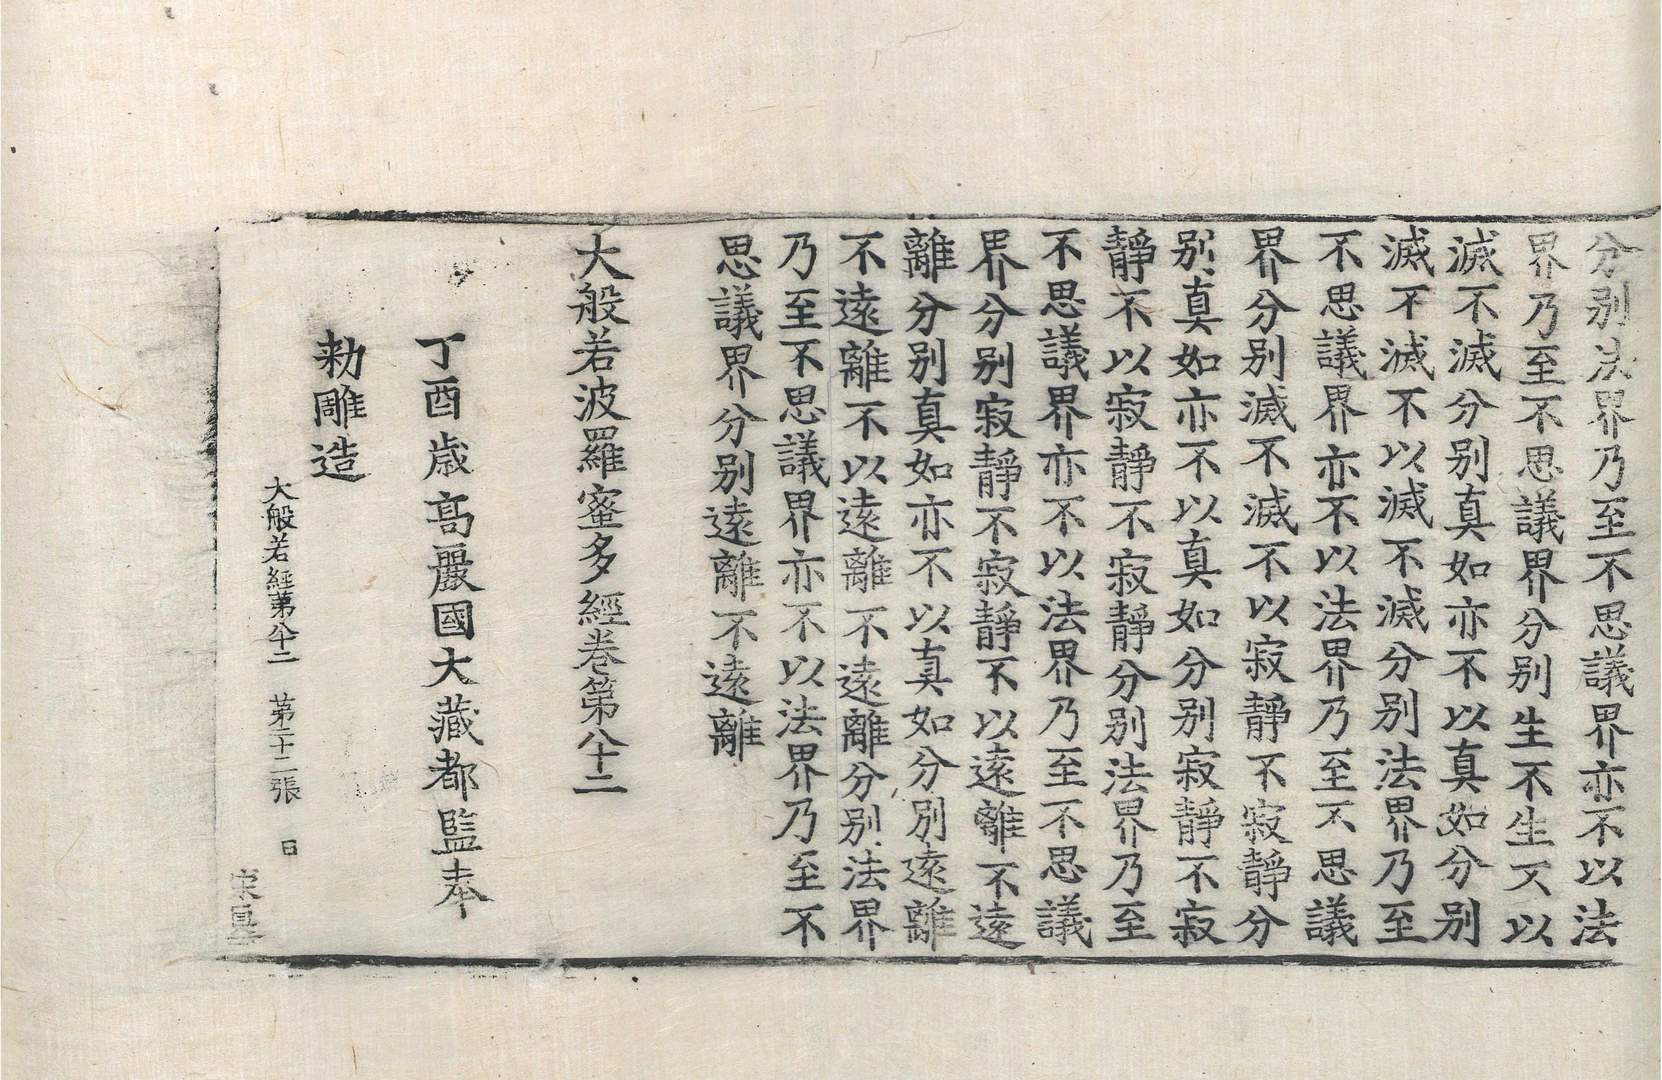 分別法界乃至不思議界亦不以法
界乃至不思議界分別生不生不以
滅不滅分別真如亦不以真如分別
滅不滅不以滅不滅分別法界乃至
不思議界亦不以法界乃至不思議
界分別滅不滅不以寂靜不寂靜分
別真如亦不以真如分別寂靜不寂
靜不以寂靜不寂靜分別法界乃至
不思議界亦不以法界乃至不思議
界分別寂靜不寂靜不以遠離不遠
離分別真如亦不以真如分別遠離
不遠離不以遠離不遠離分別法界
乃至不思議界亦不以法界乃至不
思議界分別遠離不遠離
大般若波羅蜜多經卷第八十二
丁酉歲高麗國大藏都監奉
勅雕造
大般若經苐八十二 苐二十二張 日